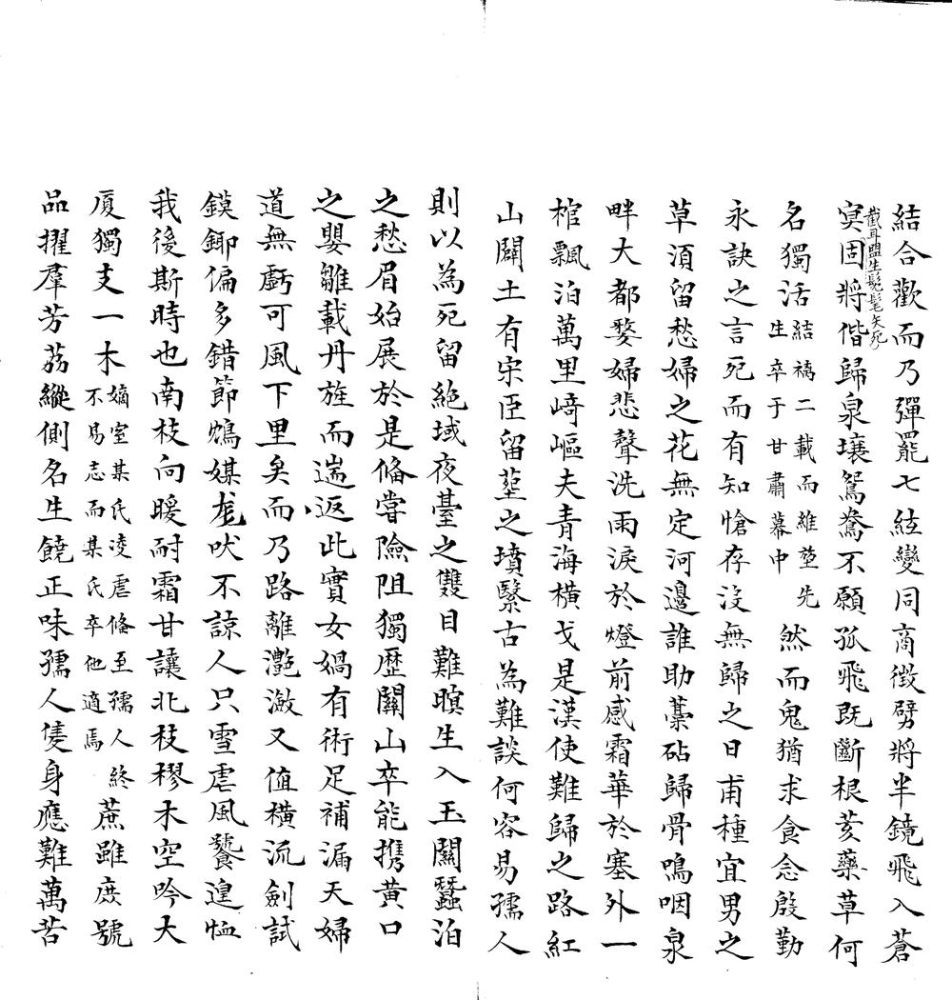 結合歡而乃彈罷七絃變同商徵劈將半鏡飛入蒼
截耳盟生髧髦矢死
冥固將偕歸泉壤鴛鴦不願孤飛既斷根荄藥草何
名獨活結褵二載而維堃先生卒于甘肅幕中然而鬼猶求食念殷勤
永訣之言死而有知愴存沒無歸之日甫種宜男之
草須留愁婦之花無定河邊誰助藁砧歸骨鳴咽泉
畔大都嫠婦悲聲洗雨淚於燈前感霜華於塞外一
棺飄泊萬里崎嶇夫青海橫戈是漢使難歸之路紅
山闢土有宋臣留塟之墳繄古為難談何容易孺人
則以為死留絕域夜臺之雙目難瞑生入玉關蠶泊
之愁眉始展於是備嘗險阻獨歷關山卒能携黃口
之嬰雛載丹旌而遄返此實女媧有術足補漏天婦
道無虧可風下里矣而乃路離灔澦又值橫流劍試
鏌鋣偏多錯節鴆媒尨吠不諒人只雪虐風饕遑恤
我後斯時也南枝向暖耐霜甘讓北枝樛木空吟大
廈獨支一木嫡室某氏凌虐備至孺人終不易志而某氏卒他適焉蔗雖庶號
品擢羣芳荔縱側名生饒正味孺人隻身應難萬苦